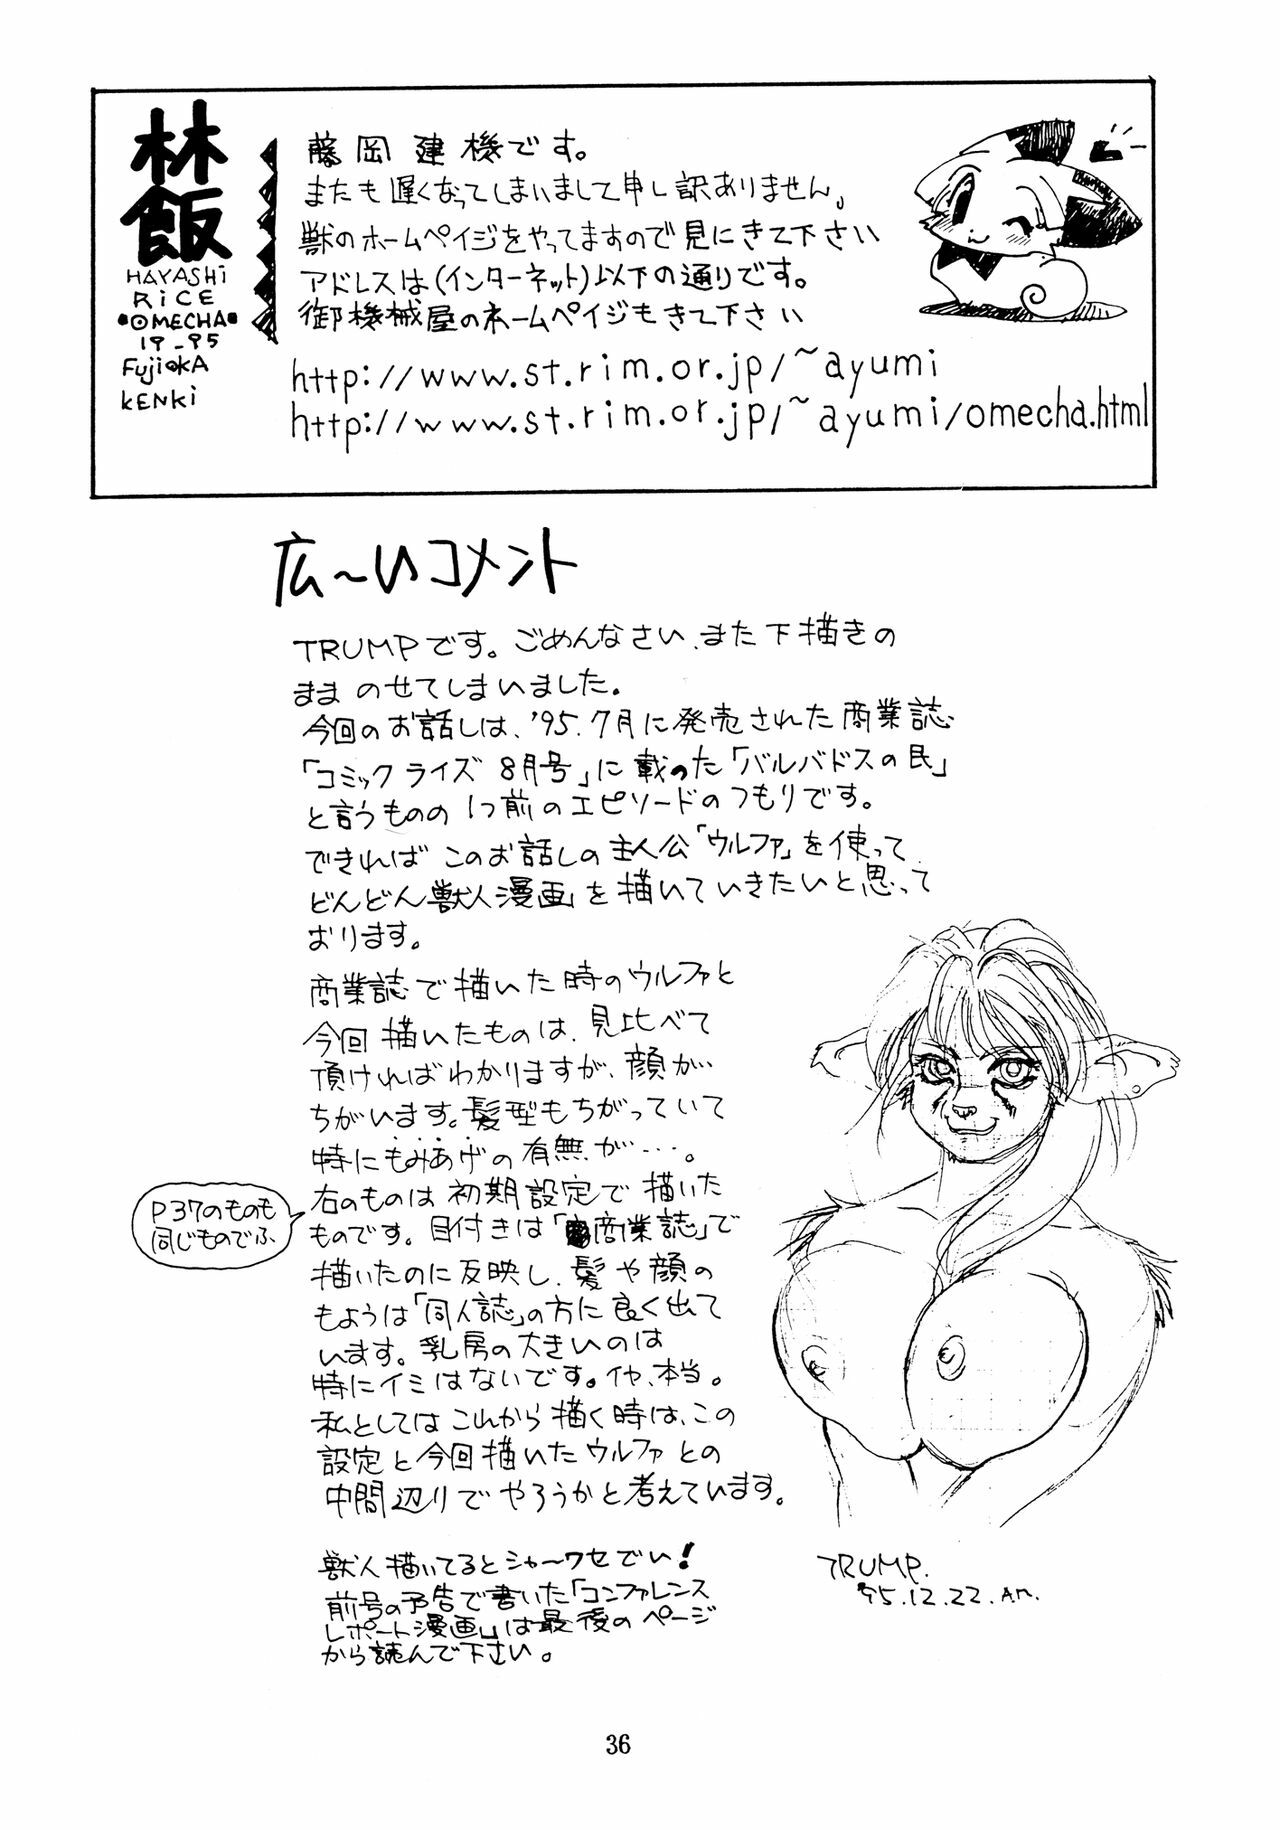 林飯
HAYASHi
RiCE
•OMECHA•
19-95
FUjiOKA
KENKi
藤岡建機です。
またも遅くなってしまいまして申し訳ありません。
獣のホームペイジをやってますので見にきて下さい
アドレスは(インターネット)以下の通りです。
御機械屋のホームペイジもきて下さい
http://www.st.rim.or.jp/~ayumi
http://www.st.rim.or.jp/~ayumi/omecha.html
広〜いコメント
TRUMPです。ごめんなさい、また下描きの
まま のせてしまいました。
今回のお話しは、'95.7月に発売された商業誌
「コミックライズ 8月号」に載った「バルバドスの民」
と言うものの 1つ前のエピソードのつもりです。
できれば このお話しの主人公「ウルファ」を使って
どんどん獣人漫画」を描いていきたいと思って
おります。
商業誌で描いた時のウルファと
今回描いたものは、見比べて
頂ければわかりますが、顔が…
ちがいます。髪型もちがっていて
特にもみあげの有無が・・・。
右のものは初期設定で描いた
ものです。目付きは「商業誌」で
描いたのに反映し、髪や顔の
もようは「同人誌」の方に良く出て
います。乳房の大きいのは
特にイミはないです。イヤ、本当。
私としてはこれから描く時は、この
設定と今回描いたウルファとの
中間辺りでやろうかと考えています。
P37のものも
同じものでふ、
獣人描いてるとシャ〜ワセでい!
前号の予告で書いた「コンファレンス
レポート漫画」は最後のページ
から読んで下さい。
TRUMP.
'95.12.22.A.M.
36